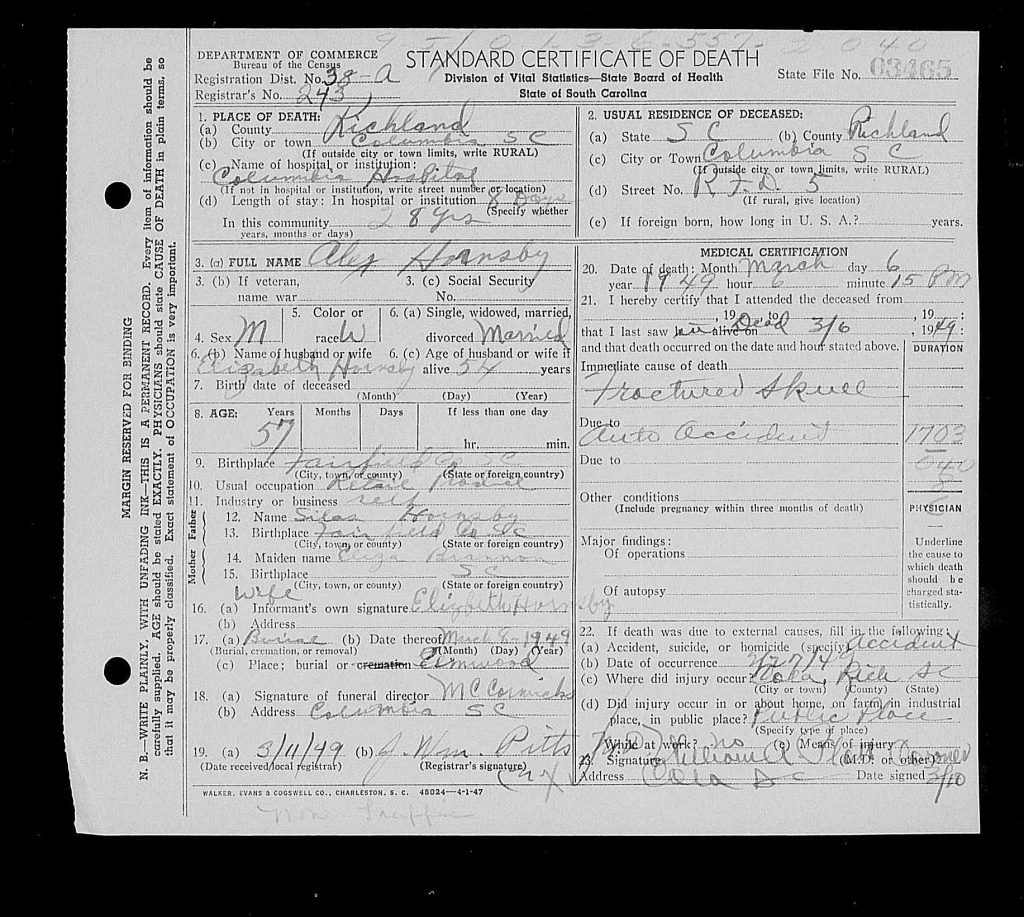 DEPARTMENT OF COMMERCE
Bureau of the Census
Registration Dist. No. 38-A
Registrar's No. 243
STANDARD CERTIFICATE OF DEATH
Division of Vital Statistics—State Board of Health
State of South Carolina
State File No. 03465
MARGIN RESERVED FOR BINDING
N. B.—WRITE PLAINLY, WITH UNFADING INK—THIS IS A PERMANENT RECORD. Every item of information should be
carefully supplied. AGE should be stated EXACTLY. PHYSICIANS should state CAUSE OF DEATH in plain terms, so
that it may be properly classified. Exact statement of OCCUPATION is very important.
1. PLACE OF DEATH:
(a) County Richland
(b) City or town Columbia S C
(If outside city or town limits, write RURAL)
(c) Name of hospital or institution:
Columbia Hospital
(If not in hospital or institution, write street number or location)
(d) Length of stay: In hospital or institution 8 Days
(Specify whether
In this community 28 yrs
years, months or days)
2. USUAL RESIDENCE OF DECEASED:
(a) State S C (b) County Richland
(c) City or Town Columbia S C
(If outside city or town limits, write RURAL)
(d) Street No. R.F.D. 5
(If rural, give location)
(e) If foreign born, how long in U. S. A.? years.
3. (a) FULL NAME Alex Hornsby
3. (b) If veteran,
name war
3. (c) Social Security
No.
4. Sex M
5. Color or
race W
6. (a) Single, widowed, married,
divorced Married
6. (b) Name of husband or wife
Elizabeth Hornsby
6. (c) Age of husband or wife if
alive 54 years
7. Birth date of deceased
(Month) (Day) (Year)
8. AGE: Years Months Days If less than one day
57
hr. min.
9. Birthplace Fairfield Co SC
(City, town, or county) (State or foreign country)
10. Usual occupation Retail
11. Industry or business self
Father
12. Name Silas Hornsby
13. Birthplace Fairfield Co SC
(City, town, or county) (State or foreign country)
Mother
14. Maiden name Eliza Brannon
15. Birthplace SC
(City, town, or county) (State or foreign country)
Wife
16. (a) Informant's own signature Elizbeth Hornsby
(b) Address
17. (a) Burial (b) Date thereof March 8-1949
(Burial, cremation, or removal) (Month) (Day) (Year)
(c) Place; burial or cremation Elmwood
18. (a) Signature of funeral director McCormick
(b) Address Columbia SC
19. (a) 3/11/49 (b) J. Wm. Pitts
(Date received local registrar) (Registrar's signature)
WALKER, EVANS & COGSWELL CO., CHARLESTON, S. C. 48024—4-1-47
Non Traffic
MEDICAL CERTIFICATION
20. Date of death: Month March day 6
year 1949 hour 6 minute 15 PM
21. I hereby certify that I attended the deceased from
, 19 , to , 19 :
that I last saw alive on Dead 3/6 , 1949:
and that death occurred on the date and hour stated above.
DURATION
Immediate cause of death
Fractured Skull
Due to
Auto Accident 1703
Due to
Other conditions
(Include pregnancy within three months of death)
PHYSICIAN
Major findings:
Of operations
Of autopsy
Underline
the cause to
which death
should be
charged sta-
tistically.
22. If death was due to external causes, fill in the following:
(a) Accident, suicide, or homicide (specify) Accident
(b) Date of occurrence 2/27/49
(c) Where did injury occur? Cola, Rich SC
(City or town) (County) (State)
(d) Did injury occur in or about home, on farm, in industrial
place, in public place? Public Place
(Specify type of place)
While at work? no (e) Means of injury
23. Signature (M.D. or other) Coroner
Address Cola SC Date signed 3/10